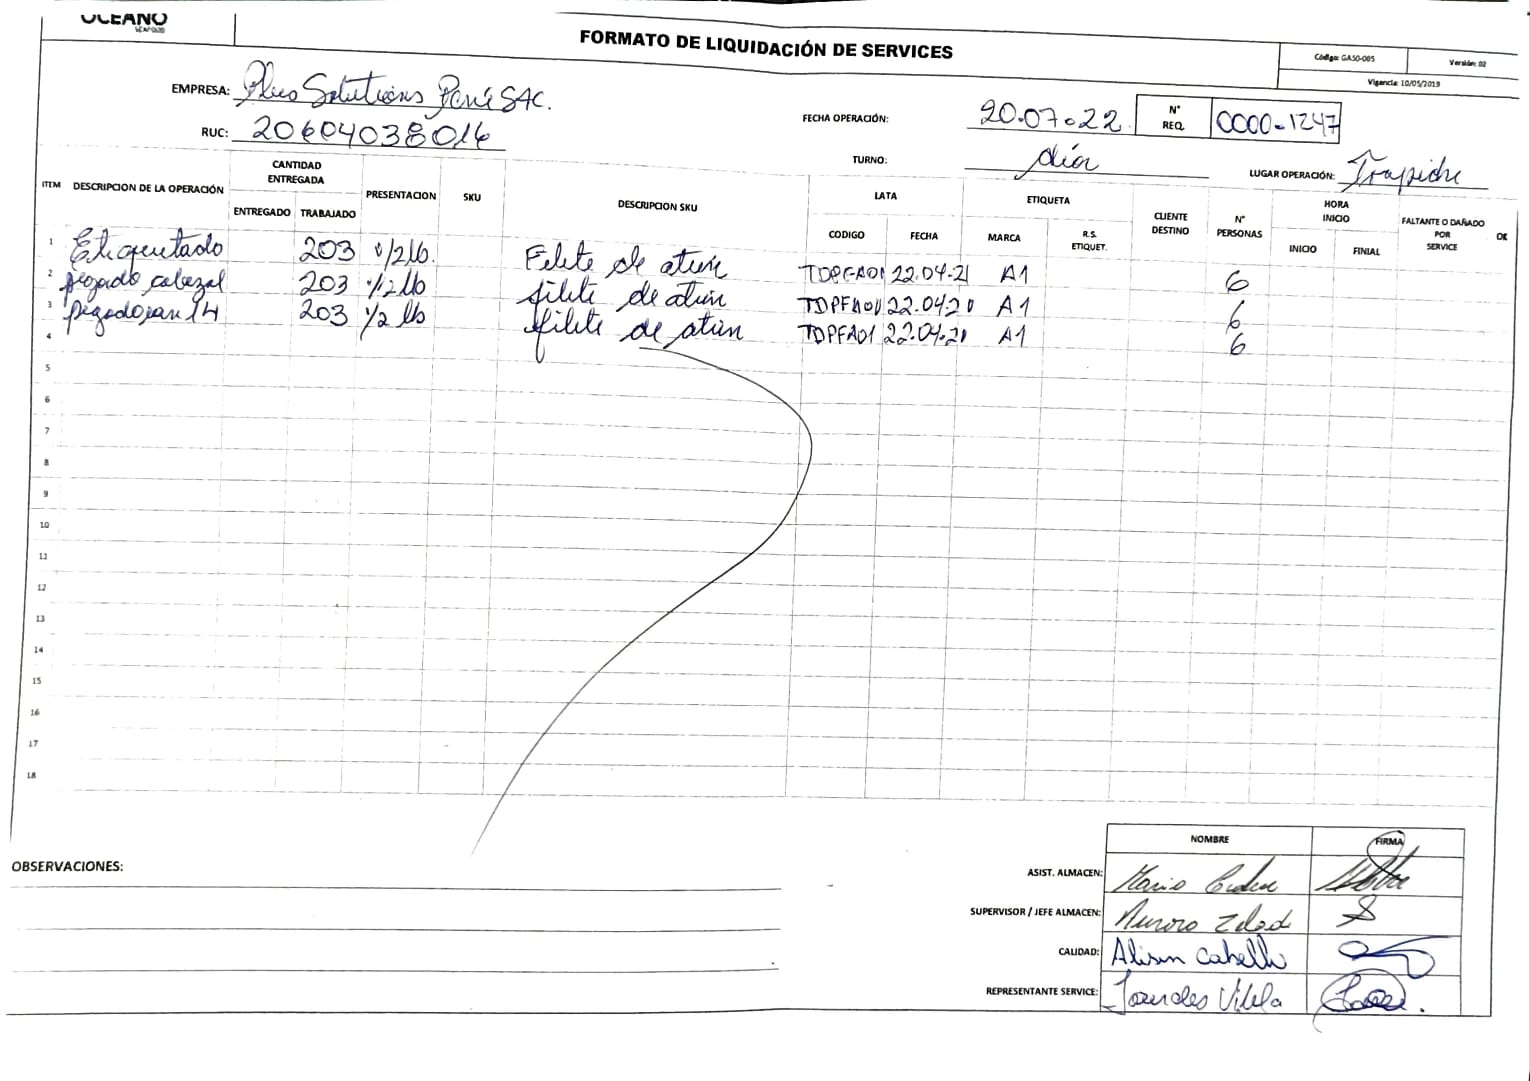 OCEANO
SEAFOOD
FORMATO DE LIQUIDACIÓN DE SERVICES
Código: GASO-005
Versión: 02
Vigencia: 10/05/2019
EMPRESA: Plus Solutions Perú SAC.
RUC: 20604038016
FECHA OPERACIÓN: 20.07.22
N° REQ. 0000-1247
TURNO: día
LUGAR OPERACIÓN: Trapiche
ITEM DESCRIPCION DE LA OPERACIÓN CANTIDAD ENTREGADA PRESENTACION SKU DESCRIPCION SKU LATA ETIQUETA CLIENTE DESTINO N° PERSONAS HORA INICIO FALTANTE O DAÑADO POR SERVICE OK
ENTREGADO TRABAJADO CODIGO FECHA MARCA R.S. ETIQUET. INICIO FINIAL
1 Etiquetado 203 1/2 lb. Filete de atun TDPFA01 22.04.21 A1 6
2 pegado cabezal 203 1/2 lb filete de atun TDPFA01 22.04.21 A1 6
3 203 1/2 lb filete de atun TDPFA01 22.04.21 A1 6
4
5
6
7
8
9
10
11
12
13
14
15
16
17
18
OBSERVACIONES:
NOMBRE FIRMA
ASIST. ALMACEN: Mario
SUPERVISOR / JEFE ALMACEN:
CALIDAD: Alison Cabello
REPRESENTANTE SERVICE: Lourdes Vilela